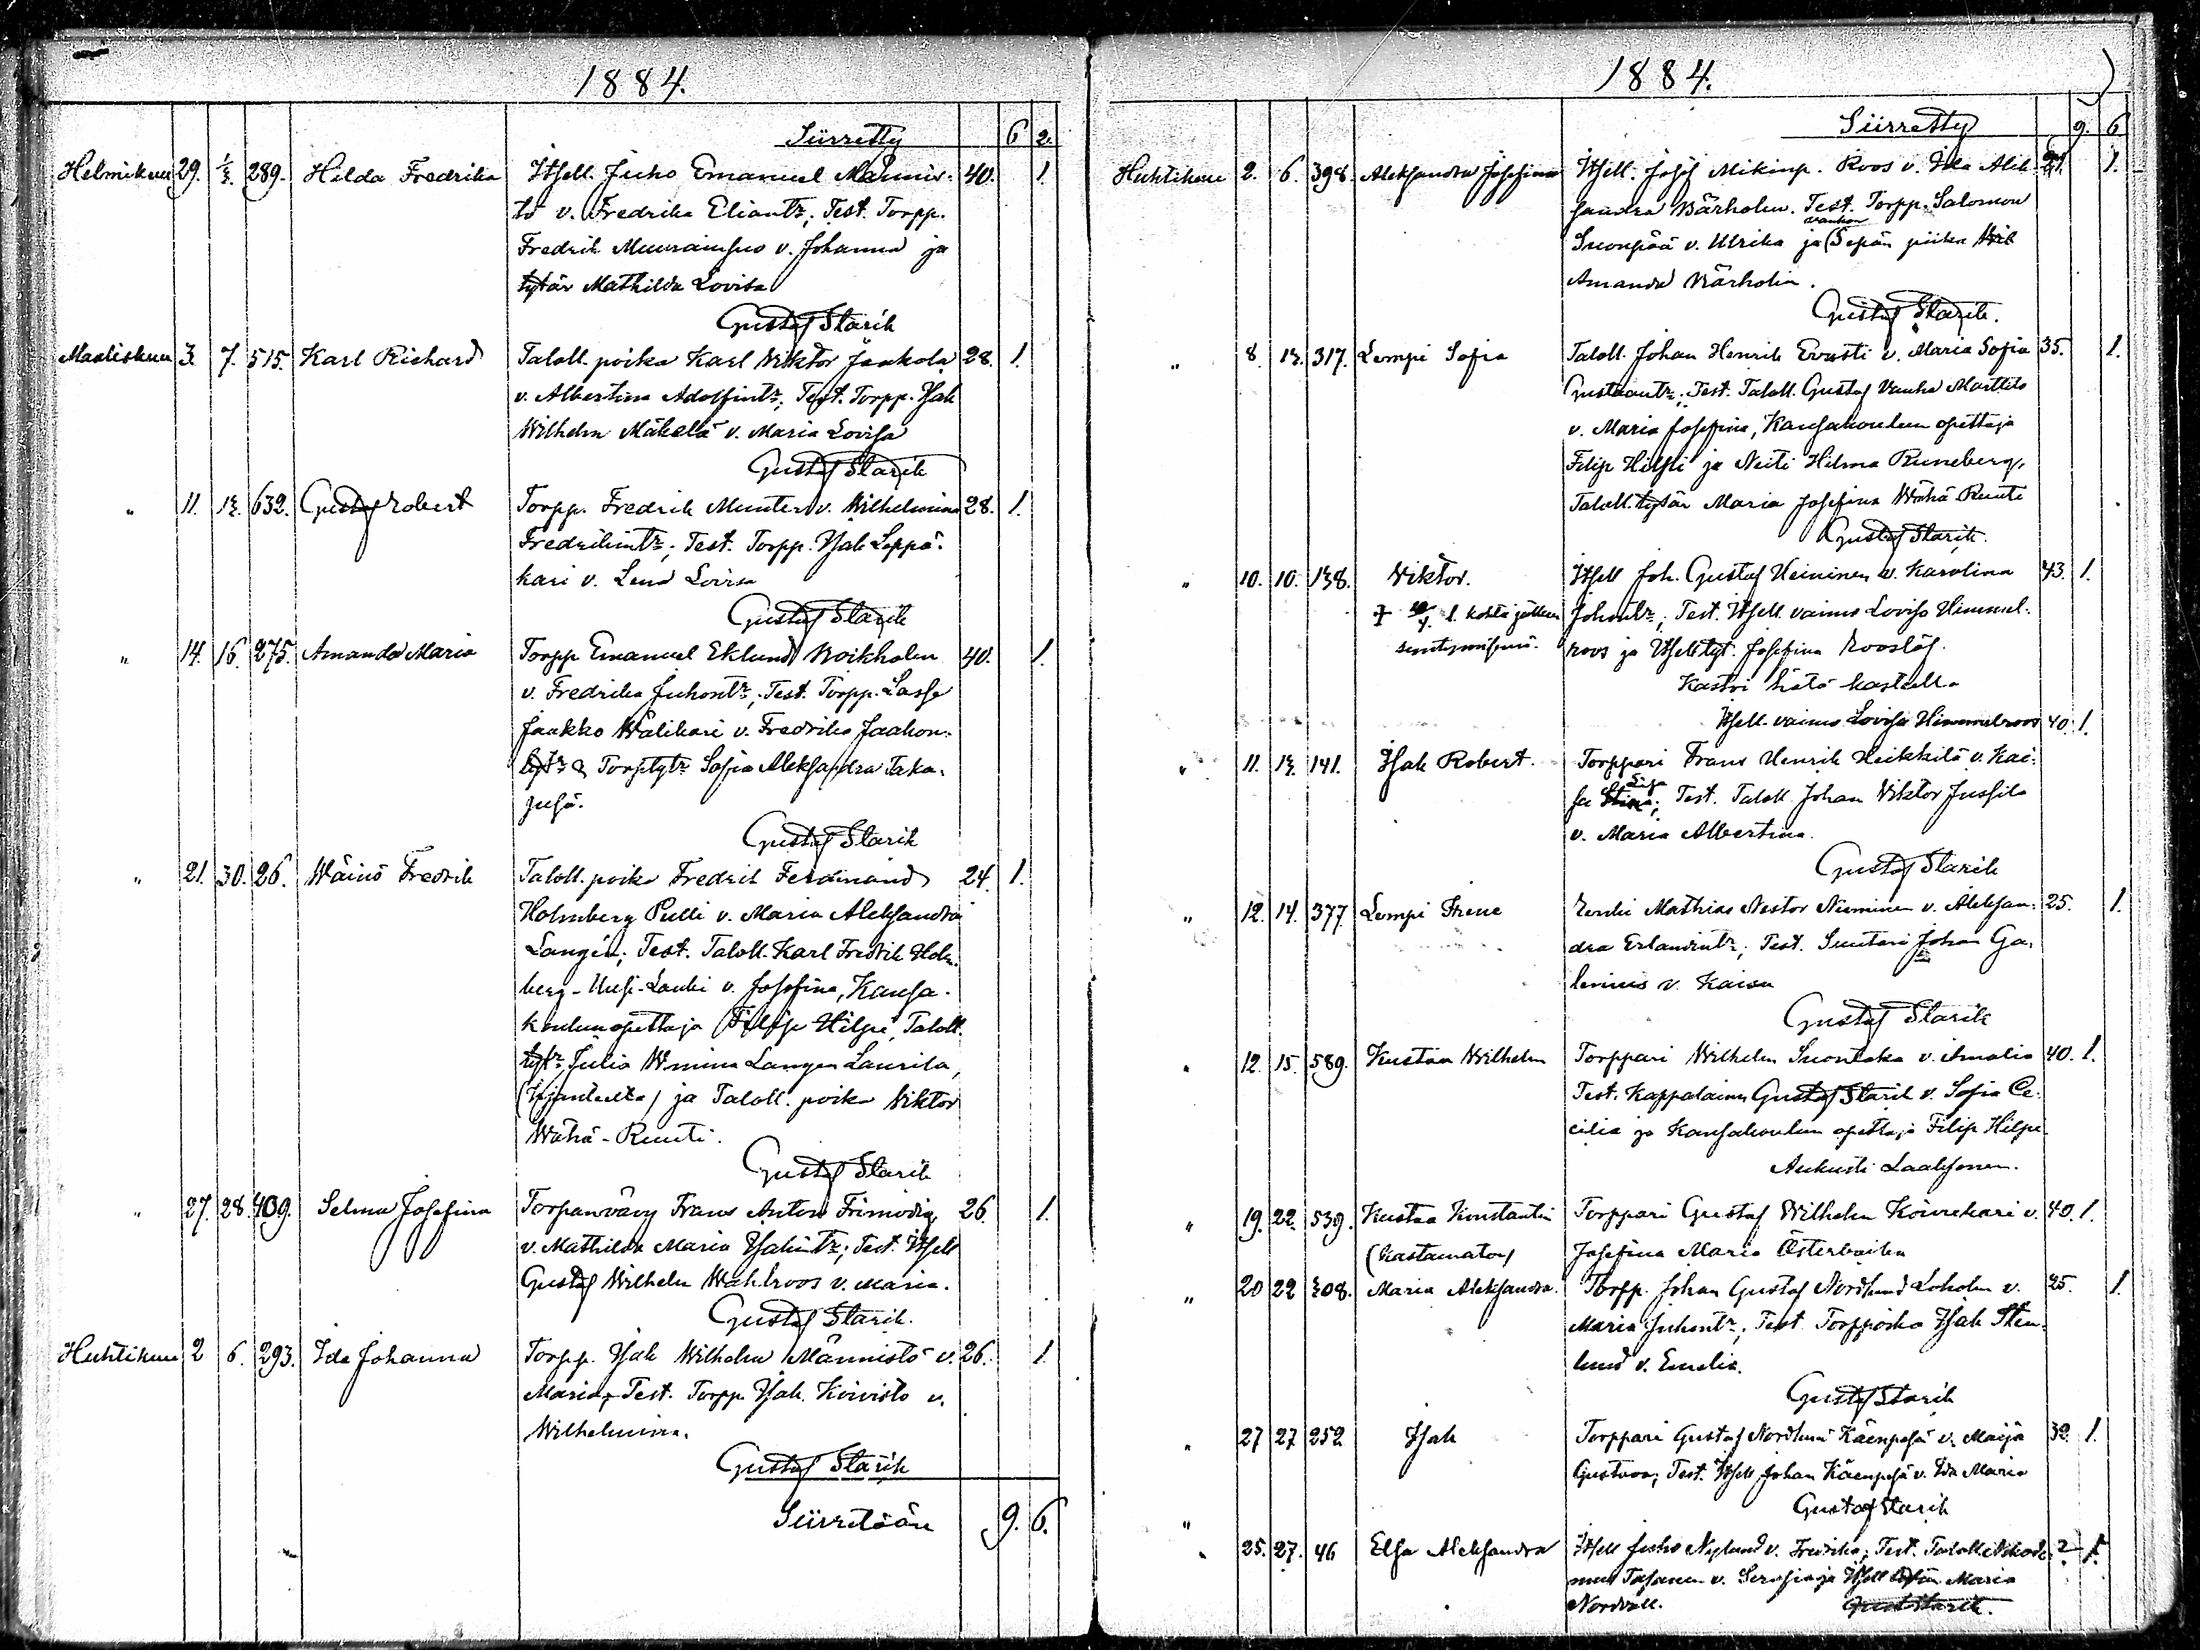 1884.
Siirretty 6 2.
Helmikuu 29. 289. Hilda Fredrika Itsell. Juho Emanuel Männis- 40. 1.
tö v. Fredrika Eliantr; Test. Torpp.
Fredrik Muurainsuo v. Johanna ja
tytär Mathilda Lovisa
Gustaf Starik
Maaliskuu 3. 7. 515. Karl Richard Taloll. poika Karl Wiktor Jaakola 28. 1.
v. Albertina Adolfintr; Test. Torpp. Isak
Wilhelm Mäkelä v. Maria Lovisa
Gustaf Starik
" 11. 12. 632. Gustaf Robert Torpp. Fredrik Munter v. Wilhelmina 28. 1.
Fredrikintr; Test. Torpp. Isak Leppä-
kari v. Lena Lovisa
Gustaf Starik
" 14. 16. 275. Amanda Maria Torpp Emanuel Eklund 40. 1.
v. Fredrika Juhontr; Test. Torpp. Lasse
Jaakko Wälikari v. Fredrika Jaakon-
tytr & Torp.tytr Sofia Aleksandra Taka-
Gustaf Starik
" 21. 30. 26. Wäinö Fredrik Taloll. poika Fredrik Ferdinand 24. 1.
Holmberg Pulli v. Maria Aleksandra
Langén; Test. Taloll. Karl Fredrik Holm-
berg-Uusi-Lauki v. Josefina, Kansa-
koulunopettaja Filip Hilpi, Taloll.
tytr, Julia Wmina Langen Laurila,
ja Taloll. poika Wiktor
Wähä-Ruuti.
Gustaf Starik
" 27. 28. 409. Selma Josefina Torpanvävy Frans Anton Frimodig 26. 1.
v. Mathilda Maria Isakintr; Test. Itsell
Gustaf Wilhelm Wahlroos v. Maria.
Gustaf Starik.
Huhtikuu 2 6. 293. Ida Johanna Torpp. Isak Wilhelm Männistö v. 26. 1.
Maria; Test. Torpp Isak Koivisto v.
Wilhelmina.
Gustaf Starik
Siirretään 9. 6.
1884.
Siirretty 9. 6.
Huhtikuu 2. 6. 398. Aleksandra Josefina Itsell. Josef Roos v. Ida Alek- 1.
sandra Wärholm. Test. Torpp. Salomon
vanhan
Suonpää v. Ulrika ja Sepän piika
Amanda Wärholm.
Gustaf Starik.
" 8. 12. 317. Lempi Sofia Taloll. Johan Henrik Erusti v. Maria Sofia 35. 1.
Gustaantr; Test. Taloll. Gustaf Vanha Marttila
v. Maria Josefina, Kansakoulun opettaja
Filip Hilpi ja Neiti Hilma Runeberg,
Taloll. tytär Maria Josefina Wähä-Ruuti
Gustaf Starik.
" 10. 10. 138. Wiktor. Itsell Joh. Gustaf Heininen v. Karolina 43. 1.
kohta jälkeen Johantr; Test. Itsell. vaimo Lovisa Himmel-
syntymisensä. roos ja Itsell tyt. Josefina Rooslöf.
Kastoi hätä kasteella
Itsell. vaimo Lovisa Himmelroos 40. 1.
" 11. 12. 141. Isak Robert. Torppari Frans Henrik Heikkilä v. Kai-
sa Stina; Test. Taloll. Johan Viktor Jussila
v. Maria Albertina.
Gustaf Starik
" 12. 14. 377. Lempi Irene Renki Mathias Nestor Nieminen v. Aleksan- 25. 1.
dra Erlandintr; Test. Suutari Johan Ga-
lenius v. Kaisa
Gustaf Starik
" 12. 15. 589. Kustaa Wilhelm Torppari Wilhelm Suontaka v. Amalia 40. 1.
Test. Kappalainen Gustaf Starik v. Sofia Ce-
cilia ja Kansakoulun opettaja Filip Hilpi
Aukusti Laaksonen.
" 19. 22. 539. Kustaa Konstantin Torppari Gustaf Wilhelm Koivukari v. 40. 1.
(kastamaton) Josefina Maria Österbacka
" 20 22 308. Maria Aleksandra. Torpp. Johan Gustaf Nordlund Loholm v. 25. 1.
Maria Juhontr; Test Torp.poika Isak Sten-
lund v. Emelia.
Gustaf Starik
" 27 27 252 Isak Torppari Gustaf Nordlund Käenpesä v. Maija 32. 1.
Gustava; Test. Itsell Johan Käenpesä v. Ida Maria
Gustaf Starik
" 25. 27. 46 Elsa Aleksandra Itsell Juho Nylund v. Fredrika; Test. Taloll. Nikode-
mus Tasanen v. Serafia ja Itsell Maria
Nordvall. Gust Starik.